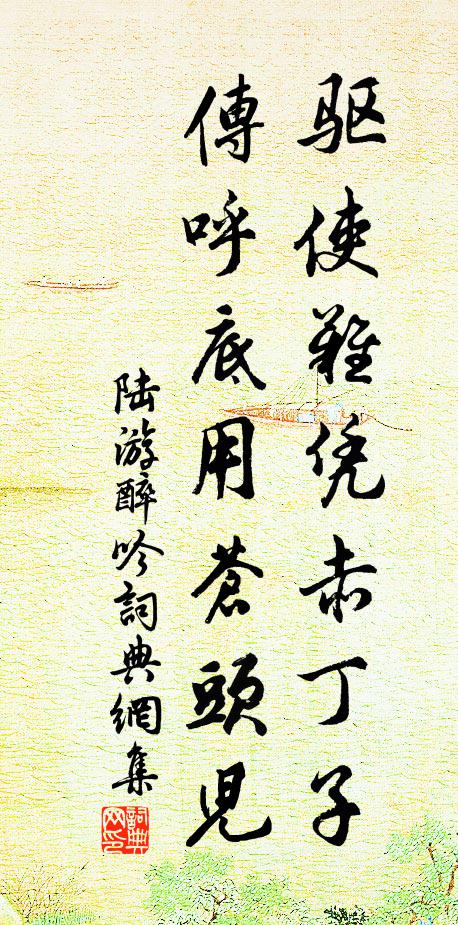 驱使难凭赤丁子
傳呼底用蒼頭児
陆游醉吟詞典網集
詞典网印